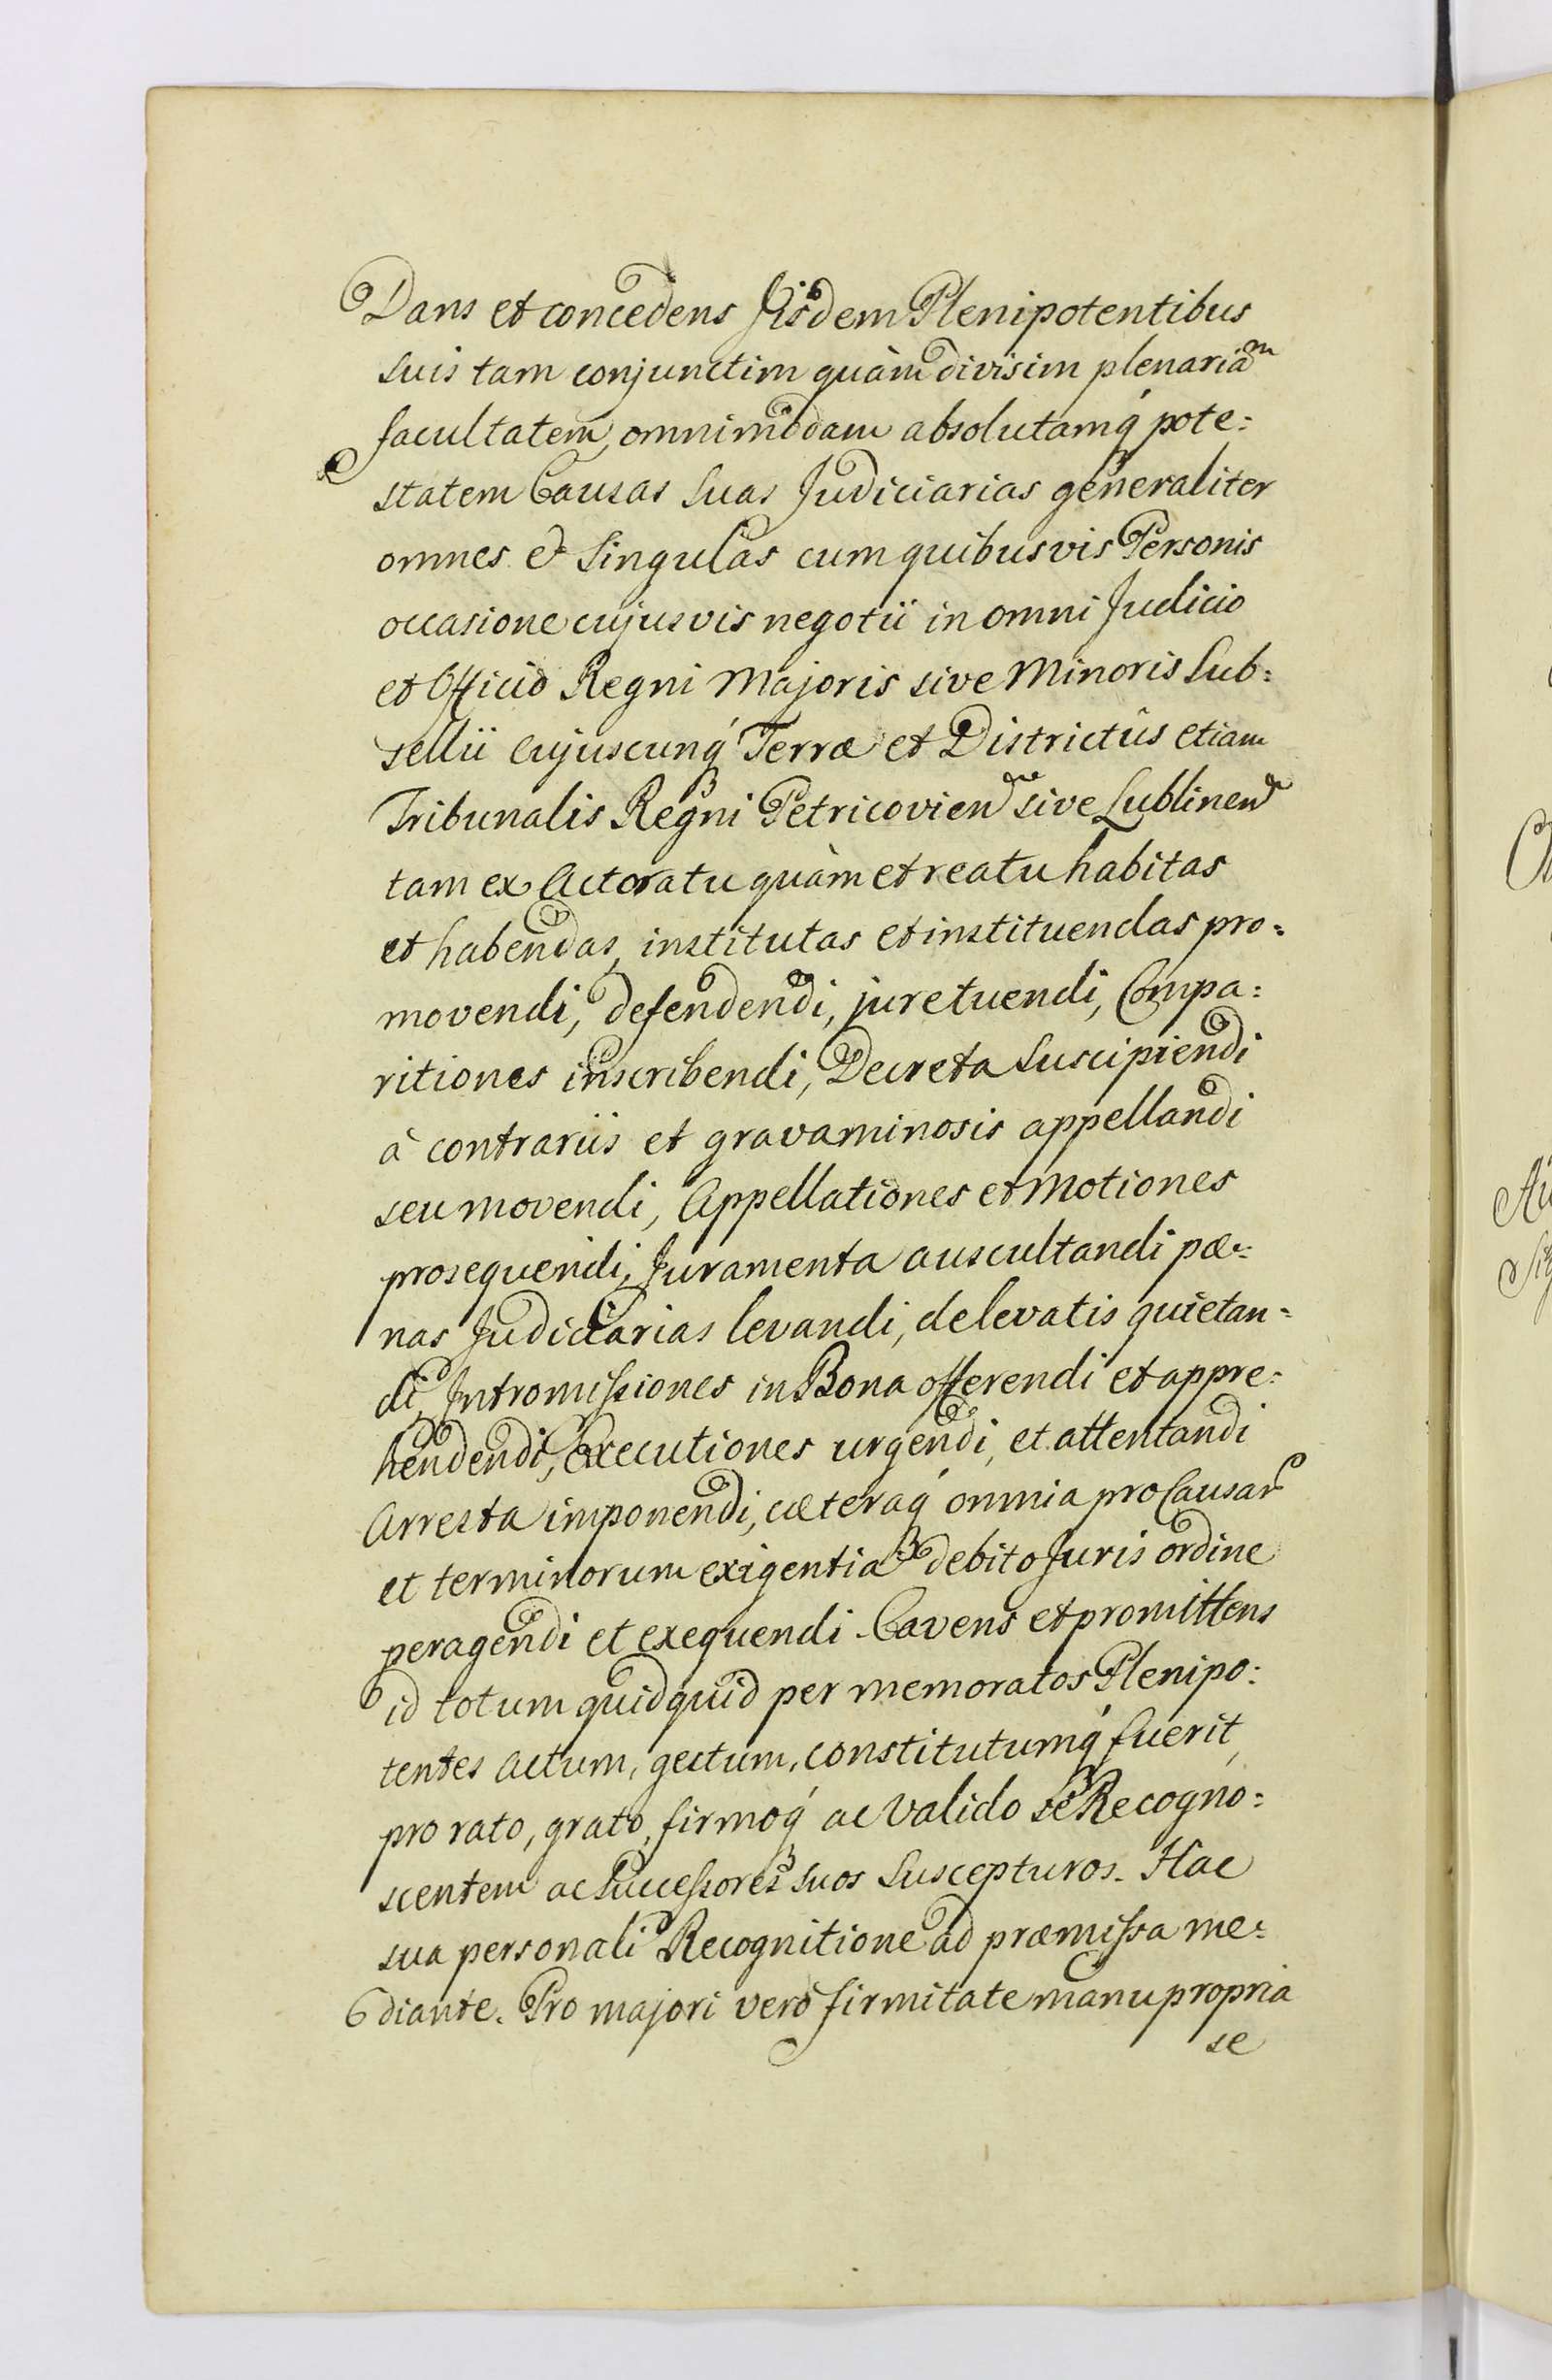 Dans et concedens Jisdem Plenipotentibus
suis tam conjunctim quàm divisim plenariam
facultatem, omnimodam absolutamq́ pote:
statem Causas suas Judiciarias generaliter
omnes et singulas cum quibusvis Personis
occasione cujusvis negotii in omni Judicio
et Officio Regni Majoris sive Minoris Sub:
sellii cujuscunq́ Terræ et Districtûs etiam
Tribunalis Regni Petricovien sive Lublinen
tam ex Actoratu quàm et reatu habitas
et habendas, institutas et instituendas pro:
movendi, defendendi, jure tuendi, Compa:
ritiones inscribendi, Decreta suscipiendi
à contrariis et gravaminosis appellandi
seu movendi, Appellationes et Motiones
prosequendi, Juramenta auscultandi pæ:
nas Judiciarias levandi, de levatis quietan:
di, Intromissiones in Bona offerendi et appre:
hendendi, Executiones urgendi, et attentandi
Arresta imponendi, cæteraq́ omnia pro Causar
et terminorum exigentia debito Juris ordine
peragendi et exequendi. Cavens et promittens
id totum quidquid per memoratos Plenipo:
tentes actum, gestum, constitutumq́ fuerit,
pro rato, grato, firmoq́ ac valido se Recogno:
scentem ac Successores suos suscepturos. Hac
sua personali Recognitione ad præmissa me:
diante. Pro majori verò firmitate manu propria
se